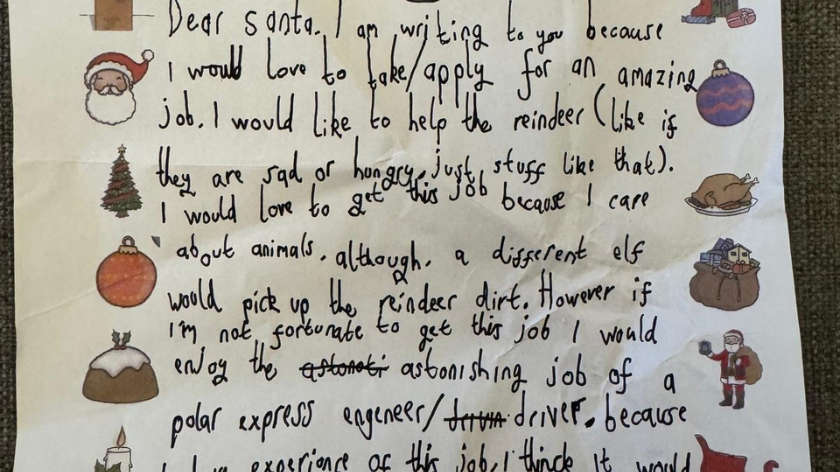 Dear Santa. I am writing to you because
I would love to take/apply for an amazing
job. I would like to help the reindeer (like if
they are sad or hungry, just stuff like that).
I would love to get this job because I care
about animals. although, a different elf
would pick up the reindeer dirt. However if
I'm not fortunate to get this job I would
enjoy the astoneti astonishing job of a
polar express engeneer/ driver. because
experience of this job, I think it would